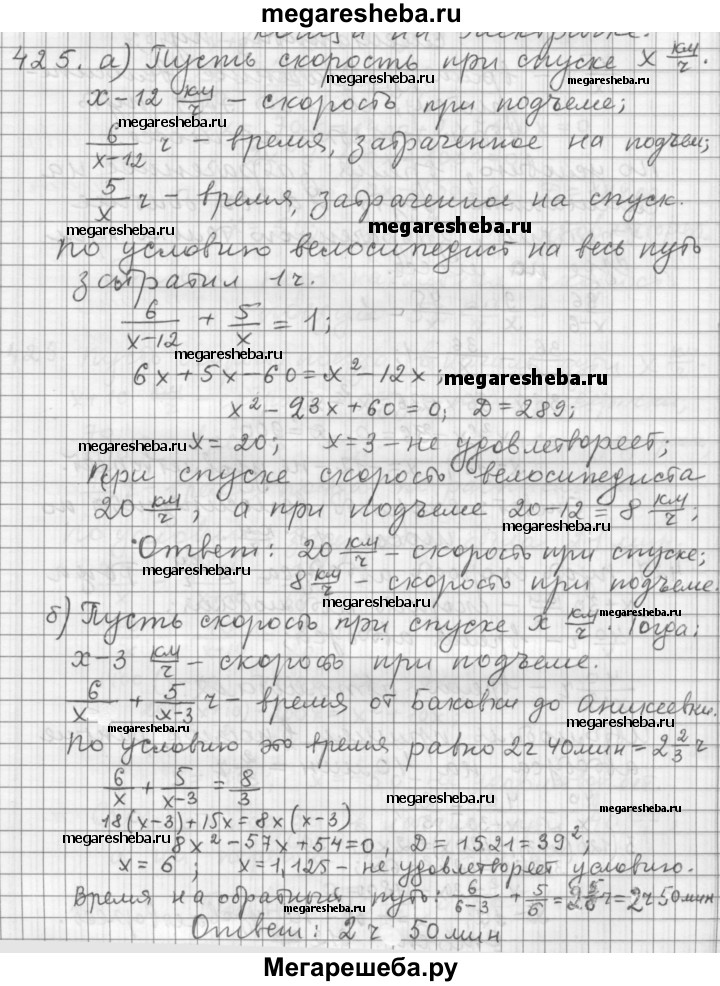 megaresheba.ru
425. а) Пусть скорость при спуске x км/ч.
megaresheba.ru
x-12 км/ч - скорость при подъеме;
megaresheba.ru
6/(x-12) ч - время, затраченное на подъем;
megaresheba.ru
5/x ч - время, затраченное на спуск.
megaresheba.ru
megaresheba.ru
По условию велосипедист на весь путь
затратил 1 ч.
megaresheba.ru
6/(x-12) + 5/x = 1;
megaresheba.ru
6x+5x-60=x²-12x;
megaresheba.ru
x²-23x+60=0; D=289;
megaresheba.ru
x=20; x=3 - не удовлетвореет;
При спуске скорость велосипедиста
20 км/ч, а при подъеме 20-12=8 км/ч;
megaresheba.ru
Ответ: 20 км/ч - скорость при спуске;
megaresheba.ru
8 км/ч - скорость при подъеме.
megaresheba.ru
б) Пусть скорость при спуске x км/ч. Тогда:
megaresheba.ru
x-3 км/ч - скорость при подъеме.
6/x + 5/(x-3) ч - время от Баковки до Аникеевки.
megaresheba.ru
megaresheba.ru
По условию это время равно 2ч 40мин = 2 2/3 ч
6/x + 5/(x-3) = 8/3
megaresheba.ru
megaresheba.ru
18(x-3)+15x=8x(x-3)
megaresheba.ru
8x²-57x+54=0, D=1521=39²;
x=6; x=1,125 - не удовлетвореет условию.
Время на обратный путь: 6/(6-3) + 5/6 = 2 5/6 ч = 2ч 50мин
megaresheba.ru
megaresheba.ru
Ответ: 2 ч 50 мин
Мегарешеба.ру